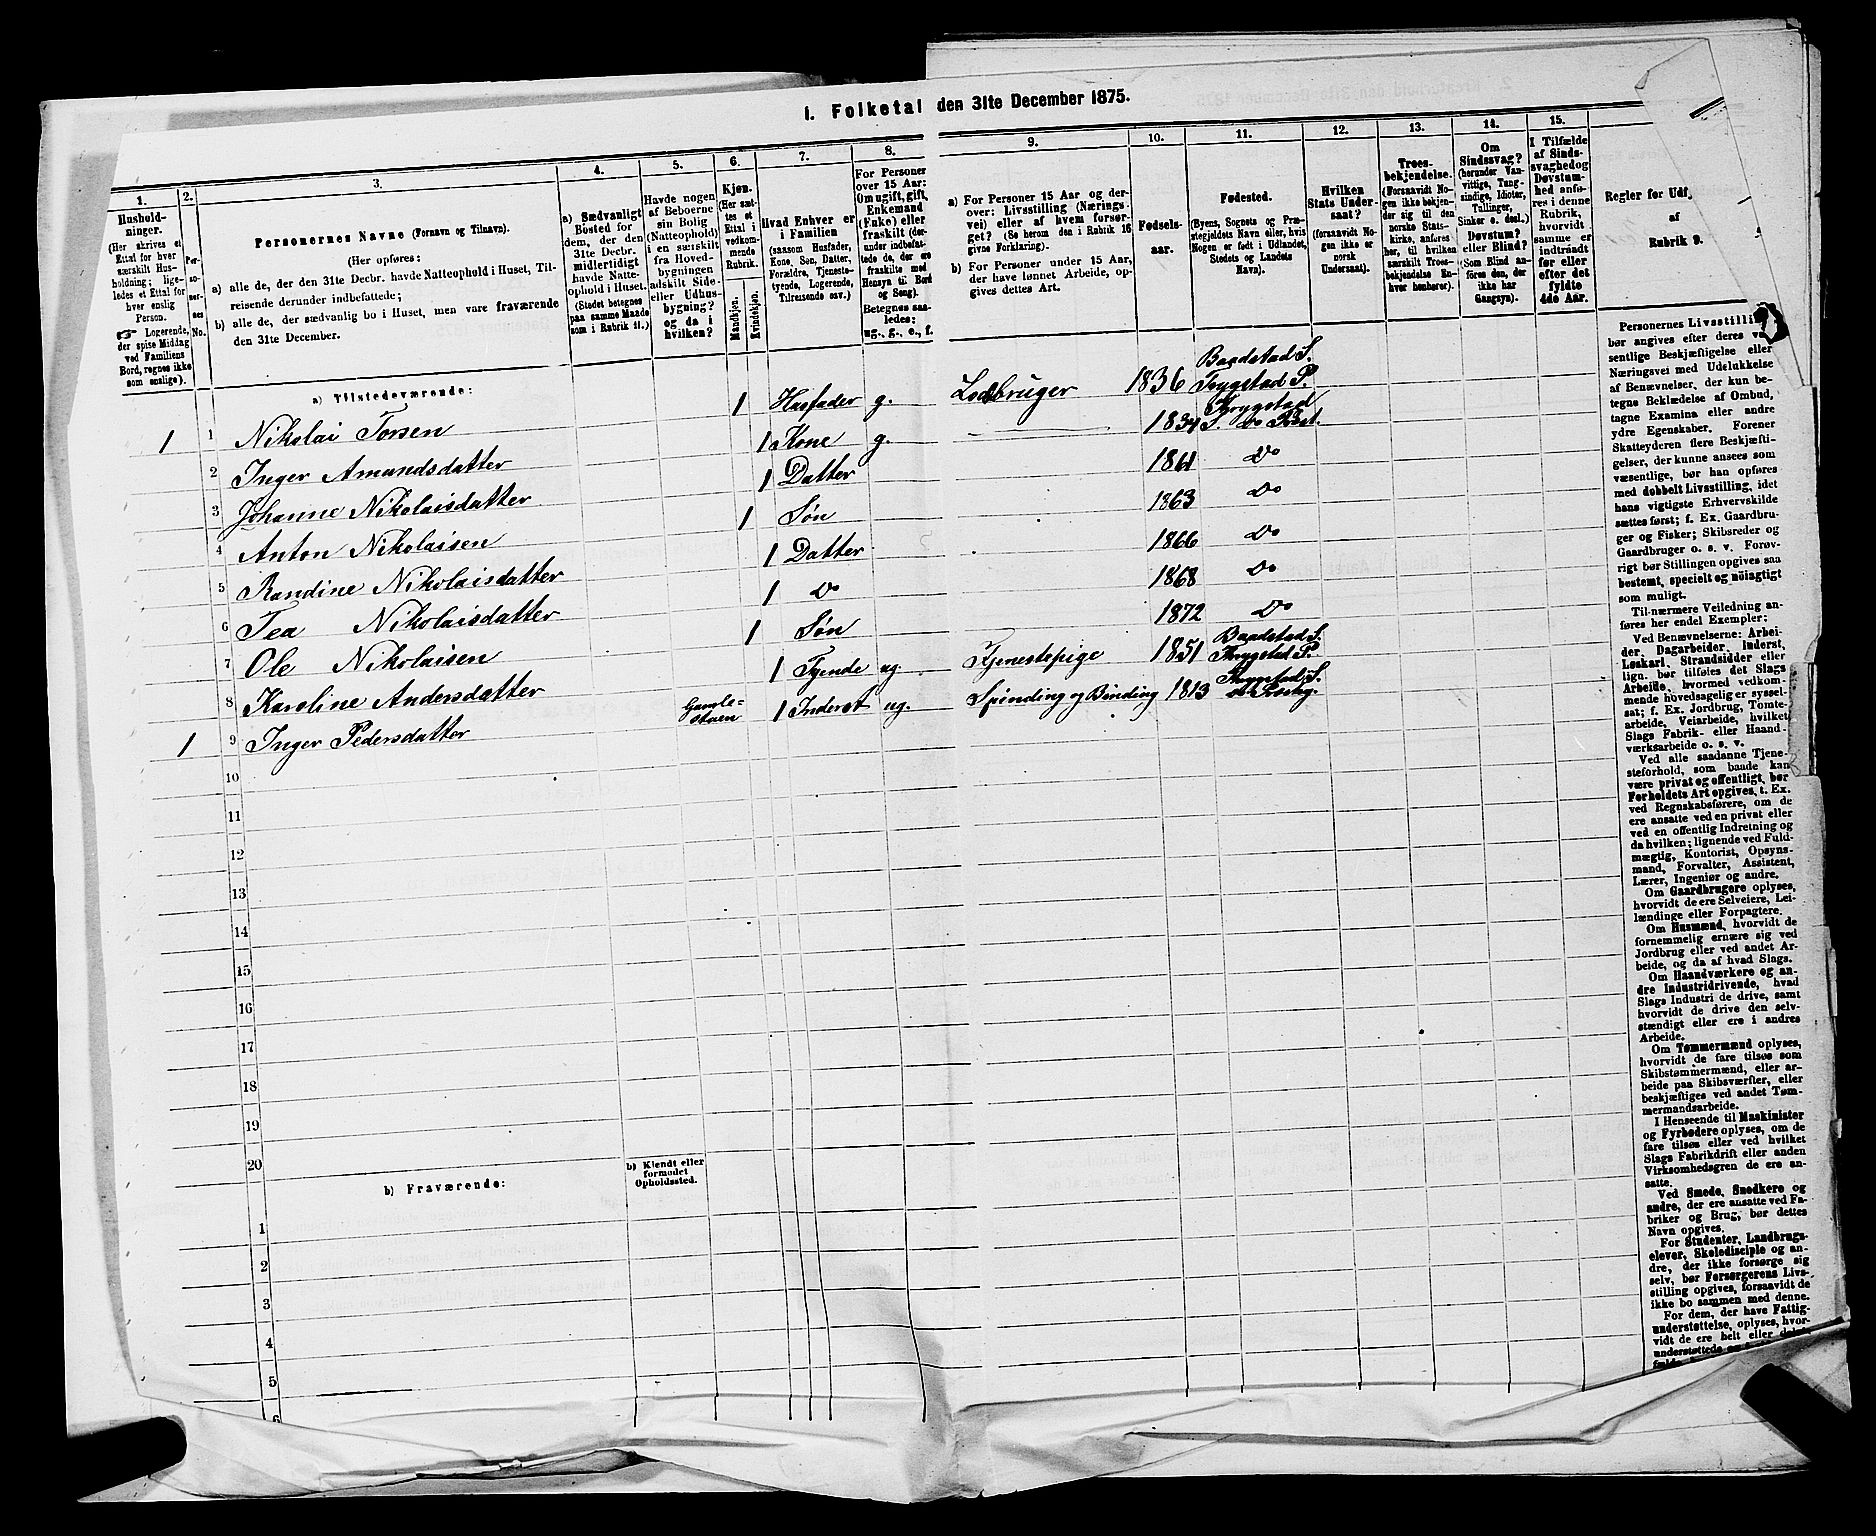 I. Folketal den 31te December 1875.
1. 2. 3. 4. 5. 6. 7. 8. 9. 10. 11. 12. 13. 14. 15.
Hushold-
ninger.
(Her skrives et
Ettal for hver
særskilt Hus-
holdning; lige-
ledes et Ettal for
hver enslig
Person.
☞ Logerende,
der spise Middag
ved Familiens
Bord, regnes ikke
som enslige).
Per-
so-
ner-
nes
No.
Personernes Navne (Fornavn og Tilnavn).
(Her opføres:
a) alle de, der den 31te Decbr. havde Natteophold i Huset, Til-
reisende derunder indbefattede;
b) alle de, der sædvanlig bo i Huset, men vare fraværende
den 31te December.
a) Sædvanligt
Bosted for
dem, der den
31te Decbr.
midlertidigt
havde Natte-
ophold i Huset.
(Stedet betegnes
paa samme Maade
som i Rubrik 11.)
Havde nogen
af Beboerne
sin Bolig
(Natteophold)
i en særskilt
fra Hoved-
bygningen
adskilt Side-
eller Udhus-
bygning?
og da i
hvilken?
Kjøn.
(Her sæt-
tes et
Ettal i
vedkom-
mende
Rubrik.
Mandkjøn.
Kvindekjøn.
Hvad Enhver er
i Familien
(saasom Husfader,
Kone, Søn, Datter,
Forældre, Tjeneste-
tyende, Logerende,
Tilreisende osv.)
For Personer
over 15 Aar:
Om ugift, gift,
Enkemand
(Enke) eller
fraskilt (der-
under indbefat-
tede de, der ere
fraskilte med
Hensyn til Bord
og Seng).
Betegnes saa-
ledes:
ug., g., e., f.
a) For Personer 15 Aar og der-
over: Livsstilling (Nærings-
vei) eller af hvem forsør-
get? (Se herom den i Rubrik 16
givne Forklaring).
b) For Personer under 15 Aar,
der have lønnet Arbeide, op-
gives dettes Art.
Fødsels-
aar.
Fødested.
(Byens, Sognets og Præ-
stegjeldets Navn eller, hvis
Nogen er født i Udlandet,
Stedets og Landets
Navn).
Hvilken
Stats Under-
saat?
(forsaavidt No-
gen ikke er
norsk
Undersaat).
Troes-
bekjendelse.
(Forsaavidt No-
gen ikke bekjen-
der sig til den
norske Stats-
kirke, anføres
her, til hvilken
særskilt Troes-
bekjendelse En-
hver henhører).
Om
Sindssvag?
(herunder Van-
vittige, Tung-
sindige, Idioter,
Tullinger,
Sinker o. desl.).
Døvstum?
eller Blind?
(Som Blind an-
føres den, der
ikke har
Gangsyn).
I Tilfælde
af Sinds-
svaghed og
Døvstum-
hed anfø-
res i denne
Rubrik,
hvorvidt
samme er
indtraadt
før eller
efter det
fyldte
4de Aar.
Regler for Udf
af
Rubrik 9.
a) Tilstedeværende:
1 1 Nikolai Torsen 1 Husfader g. 1836 Baadstad S.
Trygstad P.
2 Inger Amundsdatter 1 Kone g. 1834 Thrygstad
S. Do
3 Johanne Nikolaisdatter 1 Datter 1861 Do
4 Anton Nikolaisen 1 Søn 1863 Do
5 Randine Nikolaisdatter 1 Datter 1866 Do
6 Tea Nikolaisdatter 1 Do 1868 Do
7 Ole Nikolaisen 1 Søn 1872 Do
8 Karoline Andersdatter 1 Tyende ug. Tjenestepige 1851 Baadstad S.
Thrygstad P.
1 9 Inger Pedersdatter Gamle-
stuen 1 Inderst ug. Spinding og Binding 1813 Thrygstad S.
10
11
12
13
14
15
16
17
18
19
20
b) Fraværende:
b) Kjendt eller
formodet
Opholdssted.
1
2
3
4
5
6
Personernes Livsstillin
bør angives efter deres væ-
sentlige Beskjæftigelse eller
Næringsvei med Udelukkelse
af Benævnelser, der kun be-
tegne Beklædelse af Ombud,
tagne Examina eller andre
ydre Egenskaber. Forener
Skatteyderen flere Beskjæfti-
gelser, der kunne ansees som
væsentlige, bør han opføres
med dobbelt Livsstilling, idet
hans vigtigste Erhvervskilde
sættes først; f. Ex. Gaardbru-
ger og Fisker; Skibsreder og
Gaardbruger o. s. v. Forøv-
rigt bør Stillingen opgives saa
bestemt, specielt og nöiagtigt
som muligt.
Til nærmere Veiledning an-
føres her endel Exempler:
Ved Benævnelserne: Arbei-
der, Dagarbeider, Inderst,
Løskarl, Strandsidder eller
lign. bør tilføies det Slags
Arbeide, hvormed vedkom-
mende hovedsagelig er syssel-
sat; f. Ex. Jordbrug, Tomte-
arbeide, Veiarbeide, hvilket
Slags Fabrik- eller Haand-
værksarbeide o. s. v.
Ved alle saadanne Tjene-
steforhold, som baade kan
være privat og offentligt, bør
Forholdets Art opgives, t. Ex.
ved Regnskabsførere, om de
ere ansatte ved en privat eller
ved en offentlig Indretning og
da hvilken; lignende ved Fuld-
mægtig, Kontorist, Opsyns-
mand, Forvalter, Assistent,
Lærer, Ingeniør og andre.
Om Gaardbrugere oplyses,
hvorvidt de ere Selveiere, Lei-
lændinge eller Forpagtere.
Om Husmænd, hvorvidt de
fornemmelig ernære sig ved
Jordbrug eller ved andet Ar-
beide, og da af hvad Slags.
Om Haandværkere og an-
dre Industridrivende, hvad
Slags Industri de drive, samt
hvorvidt de drive den selv-
stændigt eller ere i andres
Arbeide.
Om Tømmermænd oplyses,
hvorvidt de fare tilsøs som
Skibstømmermænd, eller ar-
beide paa Skibsværfter, eller
beskjæftiges ved andet Tøm-
mermandsarbeide.
I Henseende til Maskinister
og Fyrbødere oplyses, om de
fare tilsøs eller ved hvilket
Slags Fabrikdrift eller anden
Virksomhedsgren de ere an-
satte.
Ved Smede, Snedkere og
andre, der ere ansatte ved Fa-
briker og Brug, bør dettes
Navn opgives.
For Studenter, Landbrugs-
elever, Skoledisciple og an-
dre, der ikke forsørge sig
selv, bør Forsørgerens Livs-
stilling opgives, forsaavidt de
ikke bo sammen med denne.
For dem, der have Fattig-
understøttelse, oplyses, hvor-
vidt de ere helt eller
understøttede